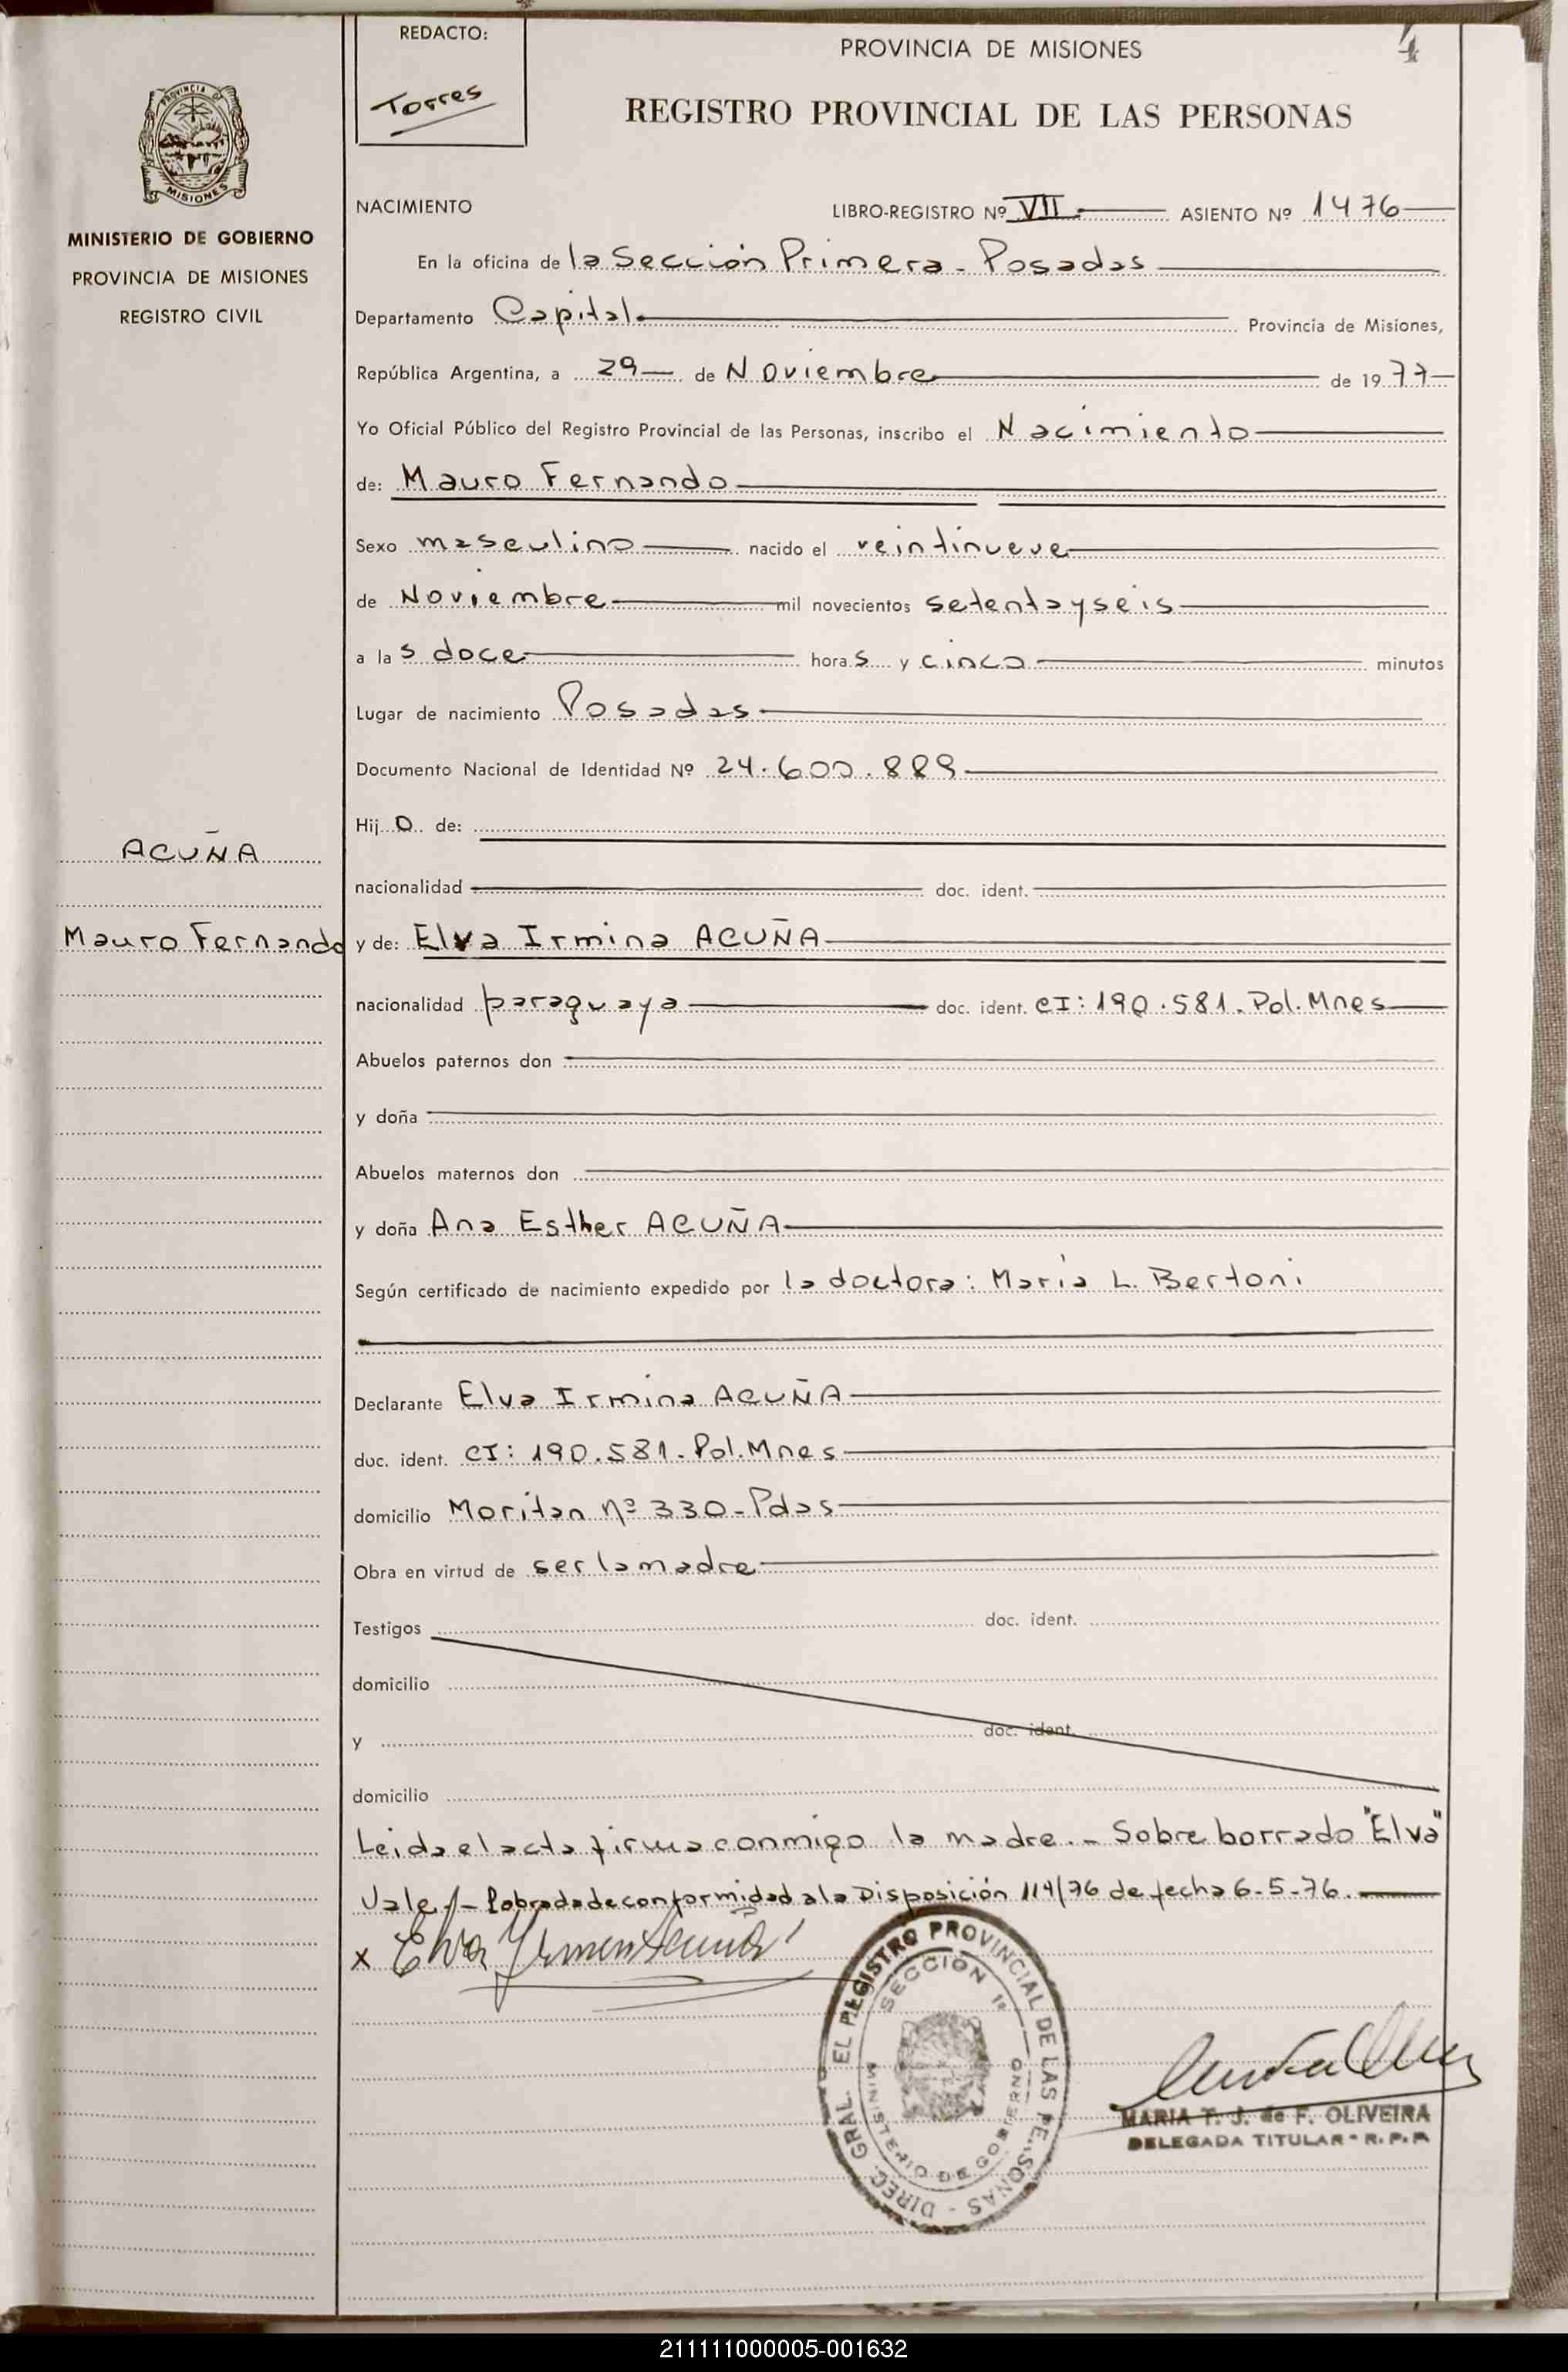 REDACTO:
Torres
PROVINCIA DE MISIONES
4
REGISTRO PROVINCIAL DE LAS PERSONAS
PROVINCIA DE
MISIONES
MINISTERIO DE GOBIERNO
PROVINCIA DE MISIONES
REGISTRO CIVIL
NACIMIENTO LIBRO-REGISTRO Nº VII ASIENTO Nº 1476
En la oficina de la Sección Primera - Posadas
Departamento Capital Provincia de Misiones,
República Argentina, a 29 de Noviembre de 1977
Yo Oficial Público del Registro Provincial de las Personas, inscribo el Nacimiento
de: Mauro Fernando
Sexo masculino nacido el veintinueve
de Noviembre mil novecientos setentayseis
a las doce horas y cinco minutos
Lugar de nacimiento Posadas
Documento Nacional de Identidad Nº 24.600.889
Hijo de:
ACUÑA
nacionalidad doc. ident.
Mauro Fernando
y de: Elva Irmina ACUÑA
nacionalidad paraguaya doc. ident. CI: 190.581. Pol. Mnes
Abuelos paternos don
y doña
Abuelos maternos don
y doña Ana Esther ACUÑA
Según certificado de nacimiento expedido por la doctora: María L. Bertoni
Declarante Elva Irmina ACUÑA
doc. ident. CI: 190.581. Pol. Mnes
domicilio Moritan nº 330 - Pdas
Obra en virtud de ser la madre
Testigos doc. ident.
domicilio
y doc. ident.
domicilio
Leida el acta firma conmigo la madre. - Sobre borrado "Elva"
Vale/- Labrada de conformidad a la Disposición 114/76 de fecha 6-5-76.
x Elva Irmina Acuña
DIREC. GRAL. EL REGISTRO PROVINCIAL DE LAS PERSONAS -
SECCION 1ª
MINISTERIO DE GOBIERNO
MARIA T. J. de F. OLIVEIRA
DELEGADA TITULAR - R. P. P.
211111000005-001632